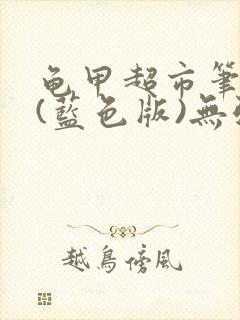 龟甲超市筆
(藍色版)無
越鳥傍風